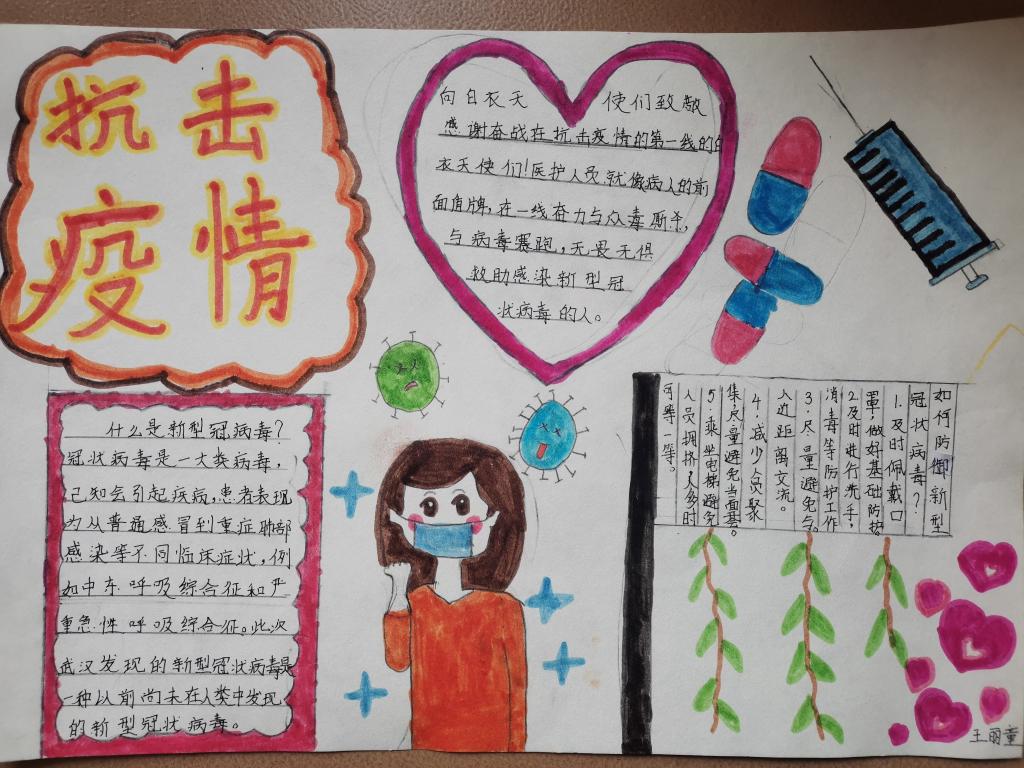 抗击
疫情
向白衣天使们致敬
感谢奋战在抗击疫情的第一线的白
衣天使们!医护人员就像病人的前
面盾牌,在一线奋力与众毒厮杀,
与病毒赛跑,无畏无惧
救助感染新型冠
状病毒的人。
什么是新型冠病毒?
冠状病毒是一大类病毒,
已知会引起疾病,患者表现
为从普通感冒到重症肺部
感染等不同临床症状,例
如中东呼吸综合征和严
重急性呼吸综合征。此次
武汉发现的新型冠状病毒是
一种以前尚未在人类中发现
的新型冠状病毒。
如何防御新型
冠状病毒?
1.及时佩戴口
罩,做好基础防护。
2及时进行洗手,
消毒等防护工作
3.尽量避免与
人近距离交流。
4.减少人员聚
集,尽量避免当面
5.乘坐电梯避免
人员拥挤,人多时
可等一等。
王丽童